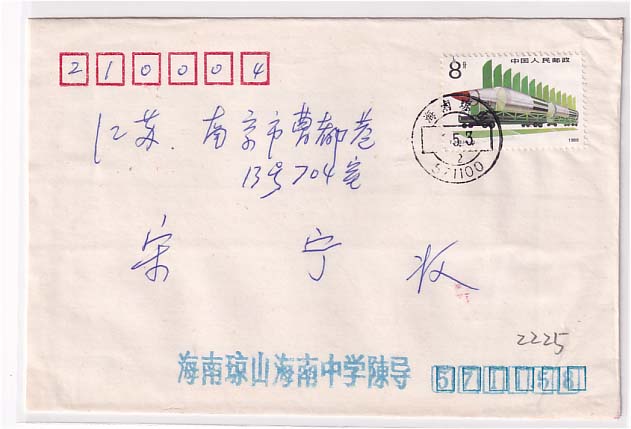 210004
8分
中国人民邮政
江苏. 南京市曹都巷
13号704室
海南琼
5.3
2
571100
1989
宋 宁 收
2225
海南琼山海南中学陳导 571158